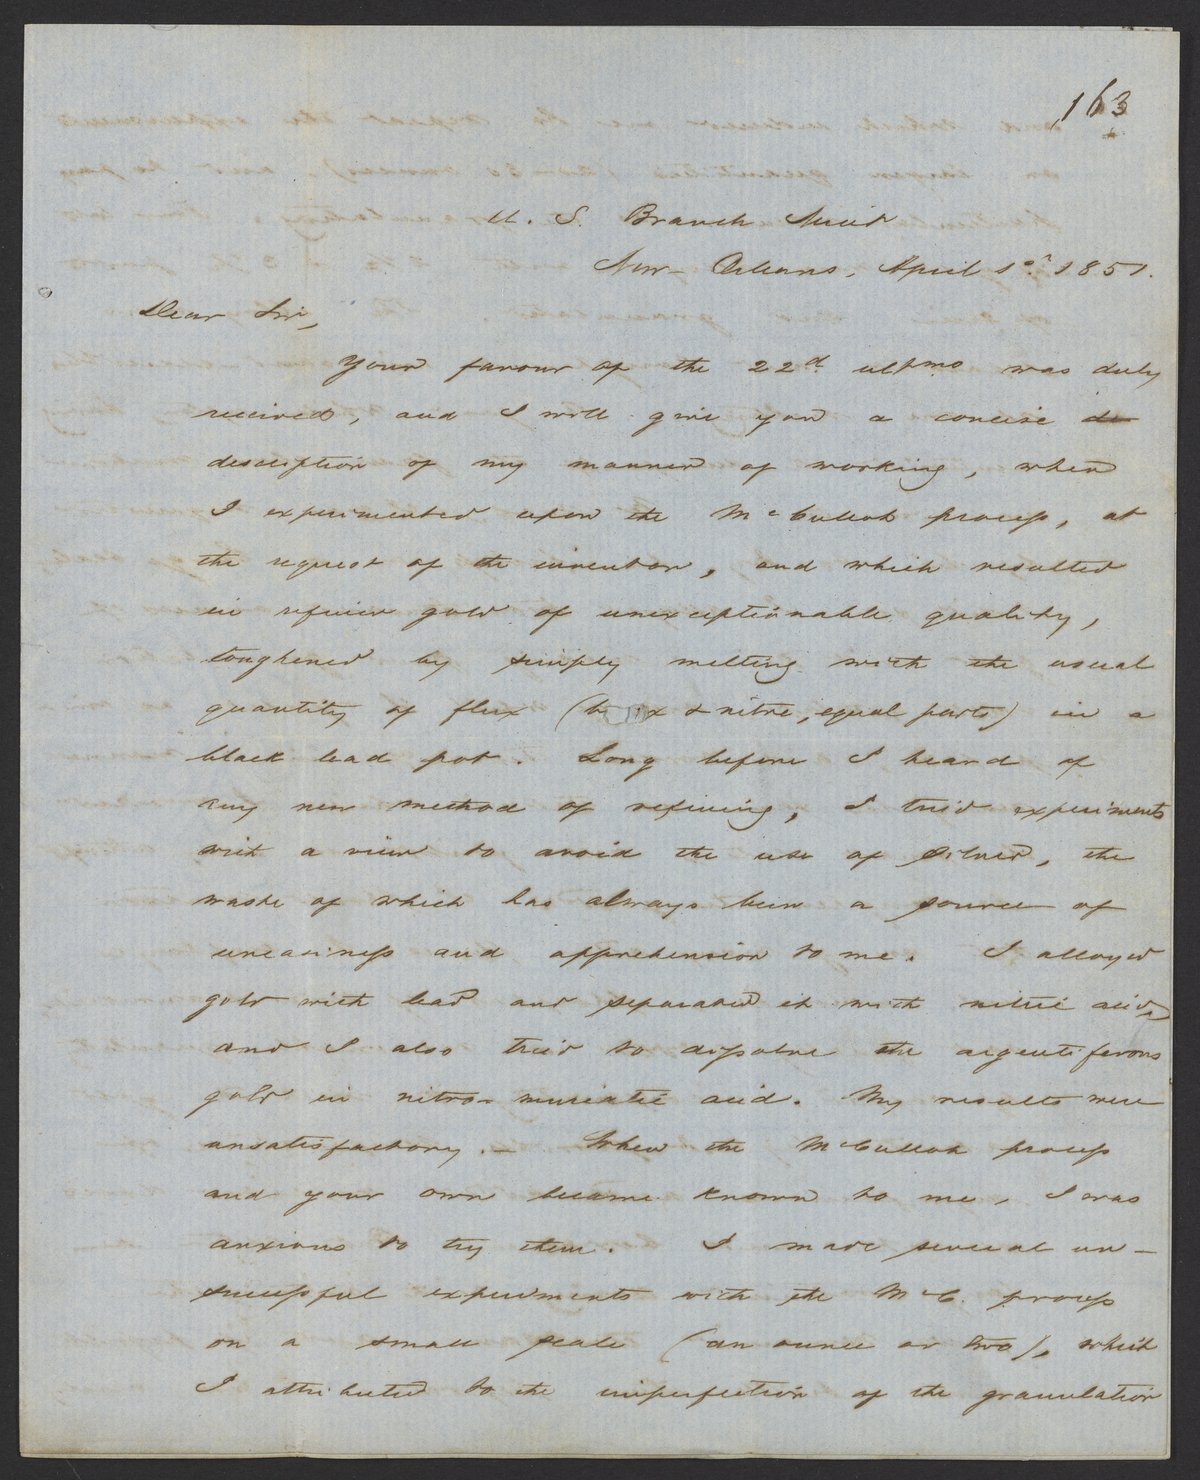 163
U. S. Branch Mint
New-Orleans, April 1st. 1851.
Dear Sir,
Your favour of the 22d. ultmo was duly
received, and I will give you a concise de
description of my manner of working, when
I experimented upon the McCulloh process, at
the request of the inventor, and which resulted
in refined gold of unexceptionable quality,
toughened by simply melting with the usual
quantity of flux (borax & nitre, equal parts) in a
black lead pot. Long before I heard of
any new method of refining, I tried experiments
with a view to avoid the use of silver, the
waste of which has always been a source of
uneasiness and apprehension to me. I alloyed
gold with lead and separated it with nitric acid,
and I also tried to dissolve the argentiferous
gold in nitro-muriatic acid. My results were
unsatisfactory.- When the McCulloh process
and your own became known to me, I was
anxious to try them. I made several un-
successful experiments with the McC. process
on a small scale (an ounce or two), which
I attributed to the imperfection of the granulation